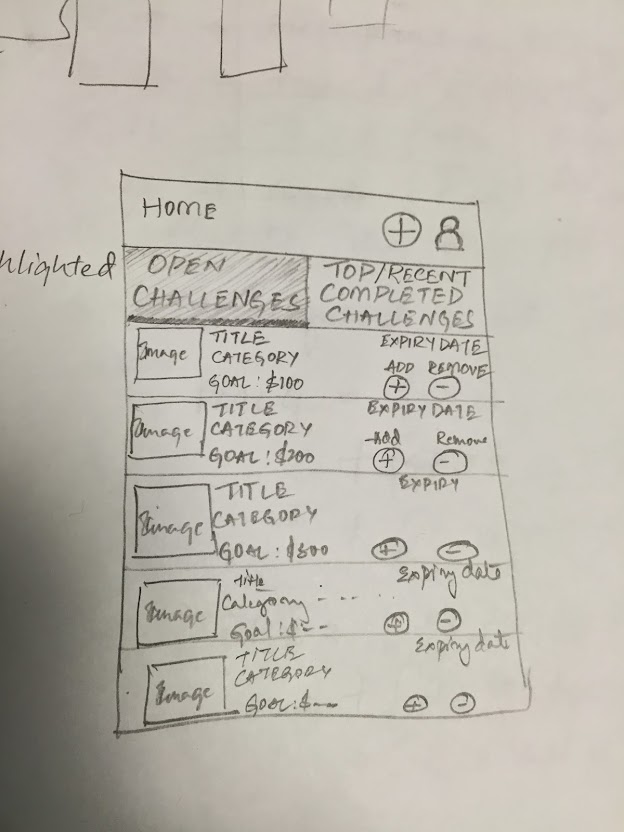 HOME
hlighted
OPEN
CHALLENGES
TOP/RECENT
COMPLETED
CHALLENGES
Image
TITLE
CATEGORY
GOAL: $100
EXPIRY DATE
ADD REMOVE
Image
TITLE
CATEGORY
GOAL: $200
EXPIRY DATE
Add Remove
Image
TITLE
CATEGORY
GOAL: $500
EXPIRY
Image
Title
Category - - - - -
Goal: $--
Expiry date
Image
TITLE
CATEGORY
GOAL: $---
Expiry date